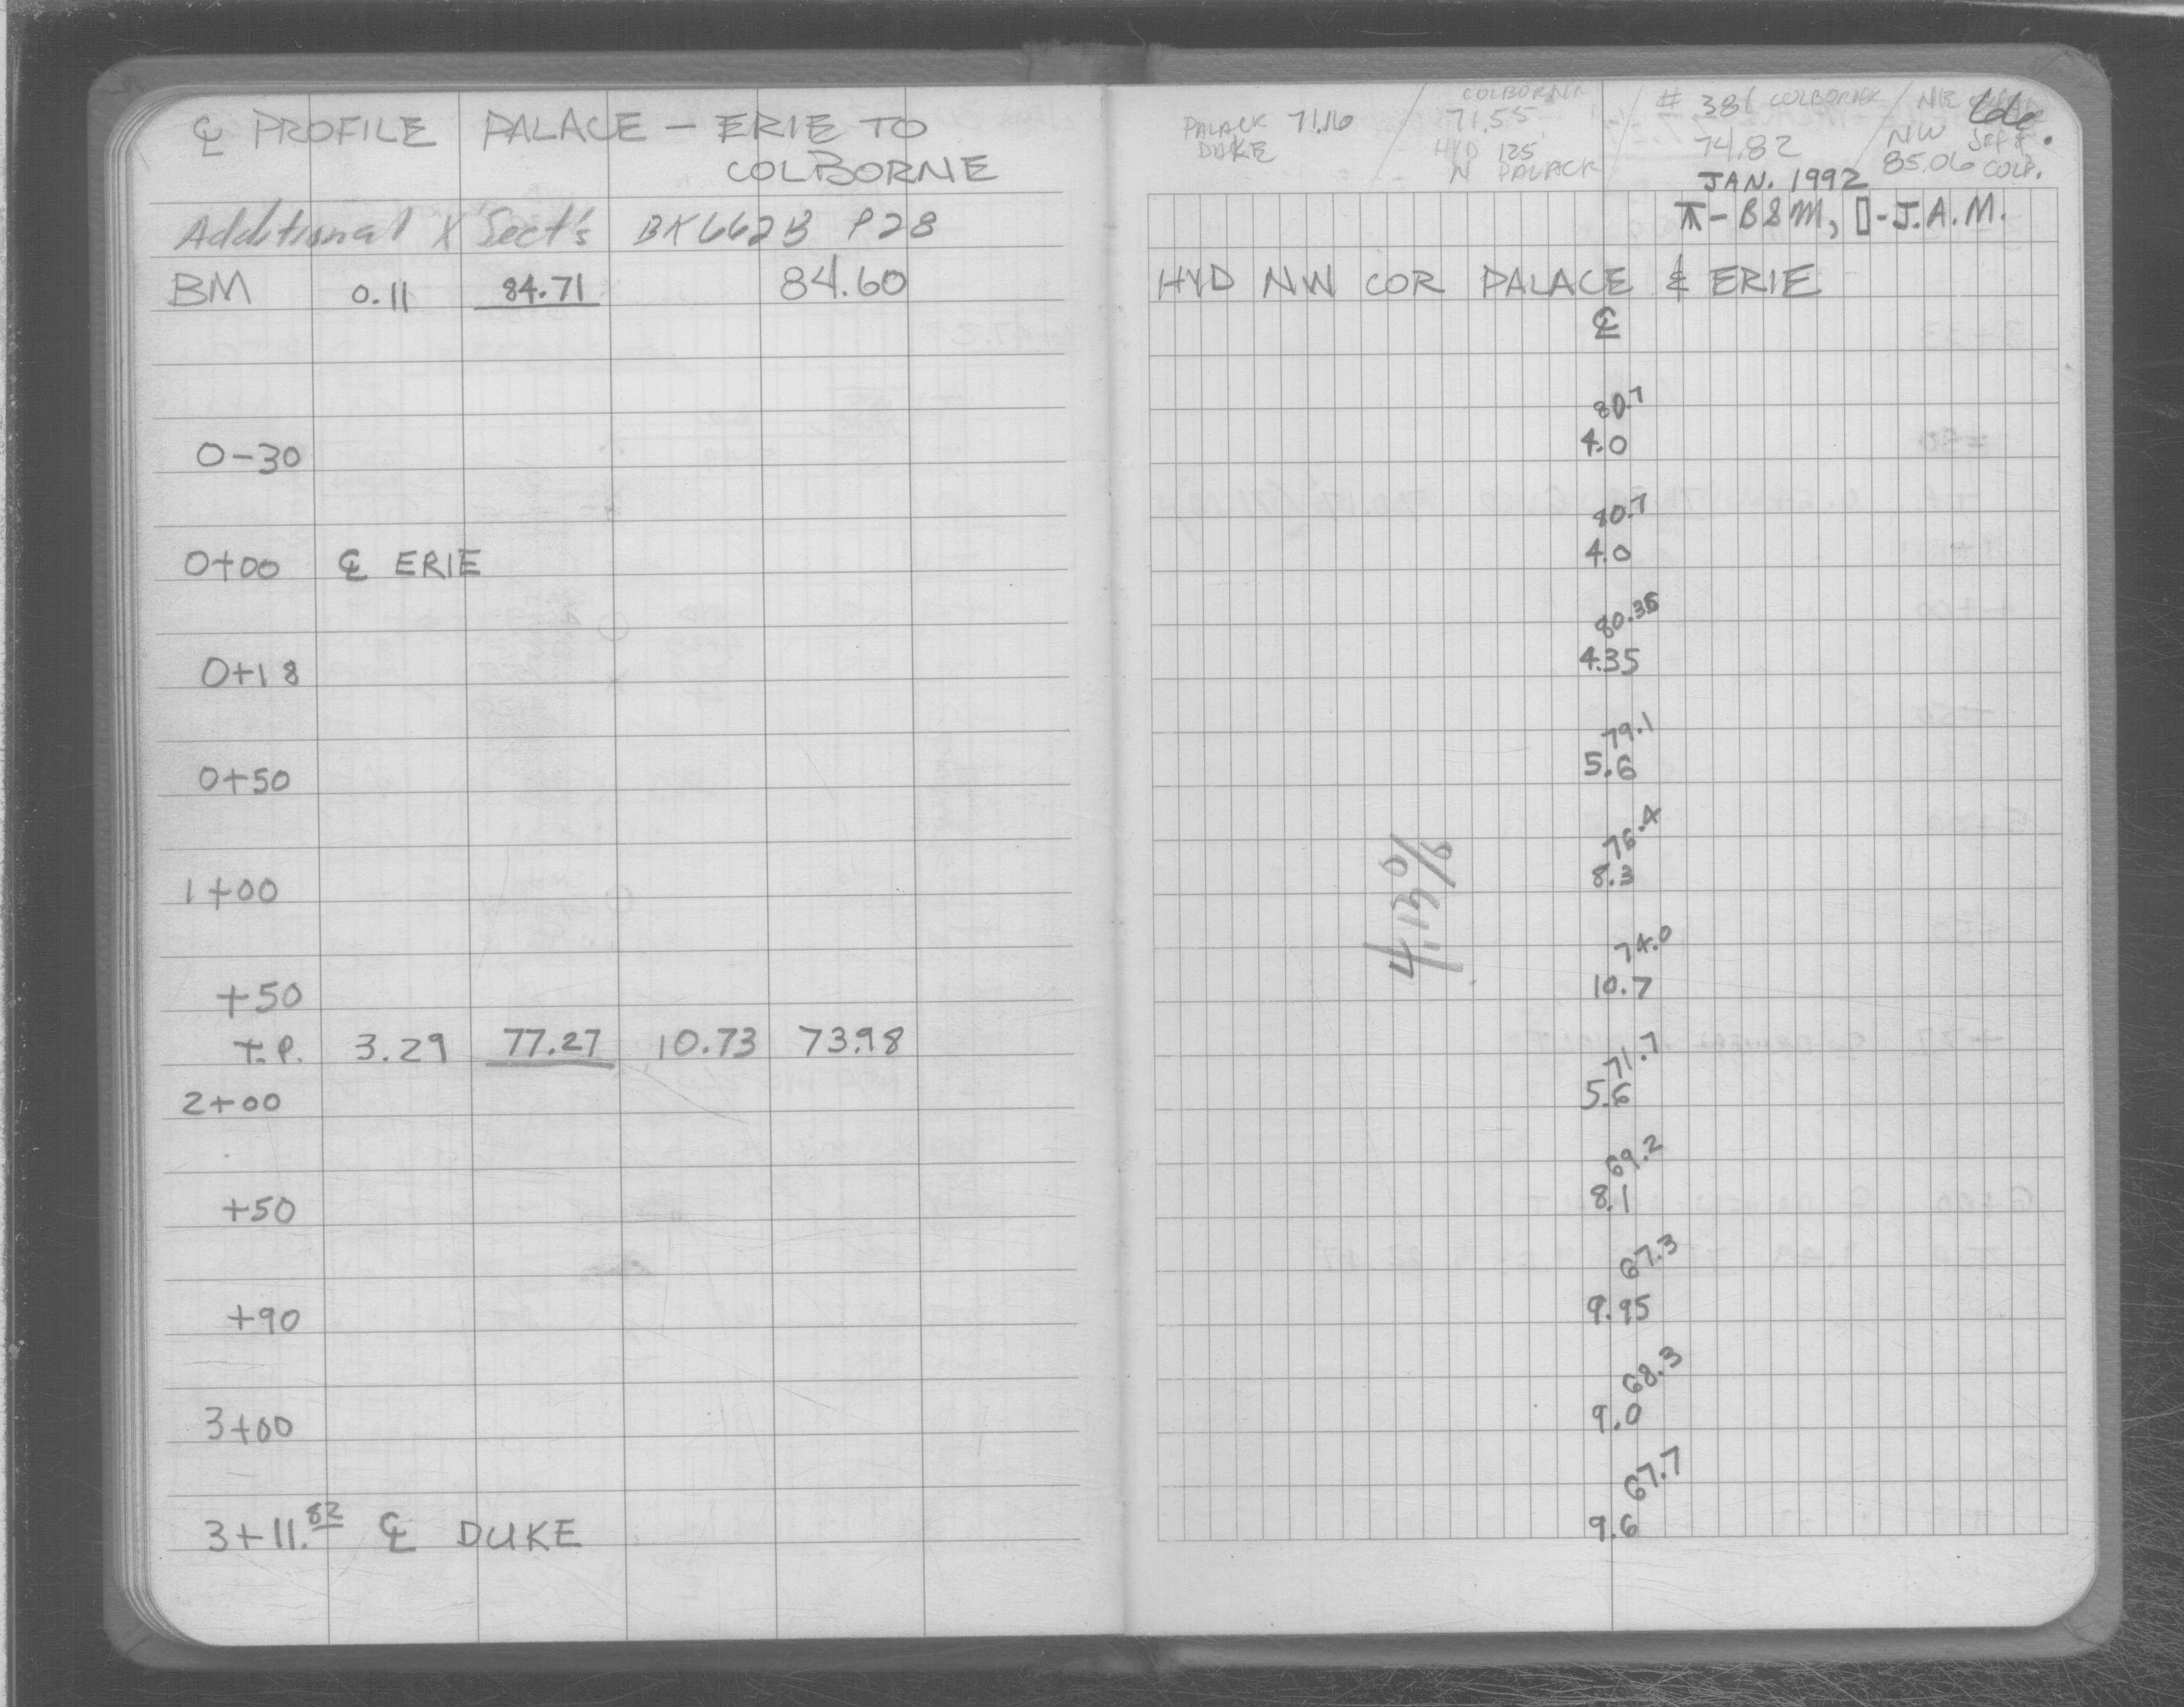 ℄ PROFILE PALACE - ERIE TO
COLBORNE
Additional X Sect's BK662B P28
BM 0.11 84.71 84.60
0-30
0+00 ℄ ERIE
0+18
0+50
1+00
+50
T.P. 3.29 77.27 10.73 73.98
2+00
+50
+90
3+00
3+11.82 ℄ DUKE
PALACE 71.16
DUKE
COLBORNE
71.55
HYD 125
N PALACE
# 381 COLBORNE
74.82
NW
85.06 COLB.
66.
JAN. 1992
⊼ - B&M, ▯ - J.A.M.
HYD NW COR PALACE & ERIE
℄
80.7
4.0
80.7
4.0
80.36
4.35
79.1
5.6
76.4
8.3
4.19%
74.0
10.7
71.7
5.6
69.2
8.1
67.3
9.95
68.3
9.0
67.7
9.6